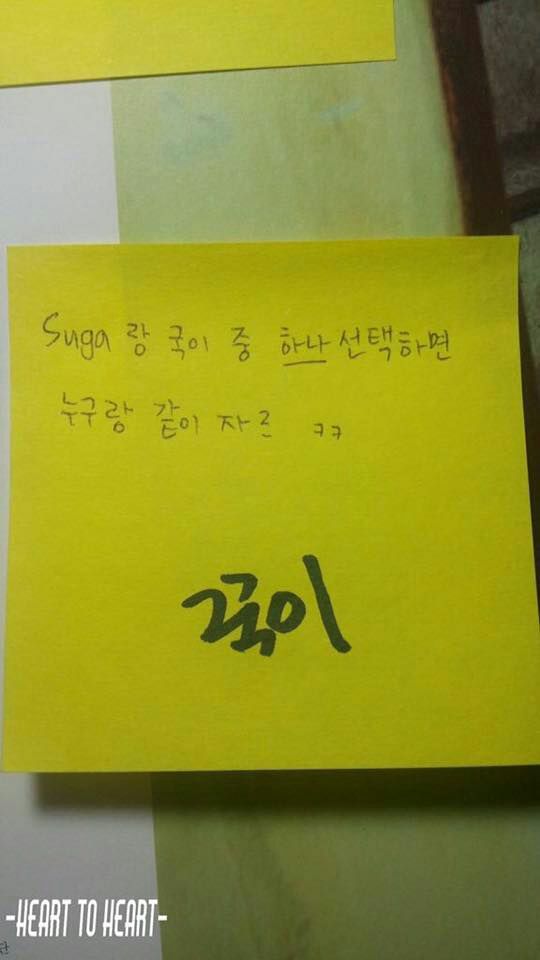 Suga 랑 국이 중 하나 선택하면
누구랑 같이 자르 ㅋㅋ
꾹이
-HEART TO HEART-